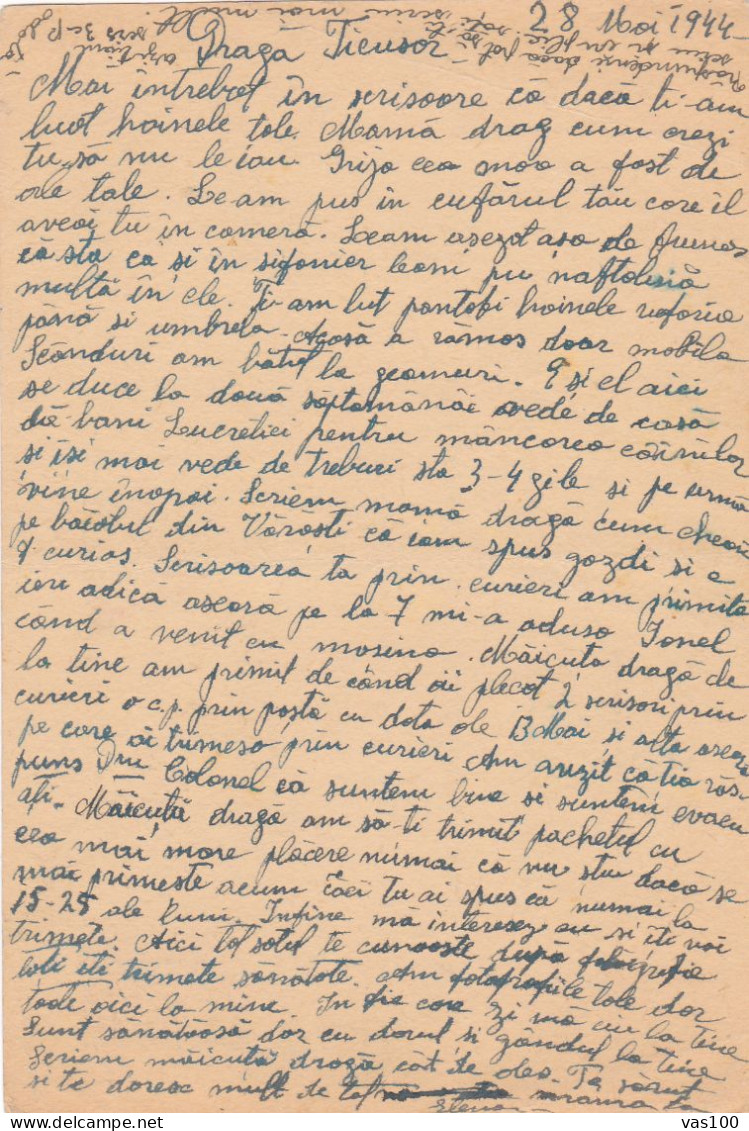 28 Mai 1944
Dragă Ticușor
Mai întrebat în scrisoare că dacă ti-am
luat hainele tale. Mamă drag cum crezi
tu, să nu le iau. Grija cea moa a fost de
ale tale. Leam pus în cufărul tău care îl
aveai tu în cameră. Leam asezat asa de frumos
că sta ca și în sifonier cani pu naftolină
multă în ele. Ti-am luat pantofi hainele
până si umbrela. Acasă a rămas doar mobila
Scânduri am bătut la geamuri. E și el aici
se duce la două săptămâni vede de casă
dă bani Lucretiei pentru mâncarea câinilor
si își mai vede de treburi sta 3-4 zile si pe urmă
vine înapoi. Scriem mamă dragă cum
pe băiatul din Vărăsti că iam spus gazdi si e
curios. Scrisoarea ta prin curieri am primito
ieri adică aseară pe la 7 mi-a aduso Ionel
când a venit cu masina. Măicuta dragă de
la tine am primit de când ai plecat 2 scrisori prin
curieri o c.p. prin poștă cu data de 13 Mai si alta aseară
pe care ai trimeso prin curieri Am auzit că tia răs-
puns Dnu Colonel că suntem bine si suntem evacu
ati. Măicuță dragă am să-ti trimit pachetul cu
cea mai mare plăcere numai că nu stiu dacă se
mai primeste acum căci tu ai spus că numai la
15-25 ale luni. Infine mă interesez eu si iti voi
trimete. Aici tot satul te cunoaste după fotografie
toti iti trimete sănătate. Am fotografiile tale dor
toate aici la mine. In fie care zi mă uit la tine
Sunt sănătoasă dor cu dorul si gândul la tine
Scriem măicută dragă cât de des. Te sărut
si te doresc mult de tot mama ta
Elena